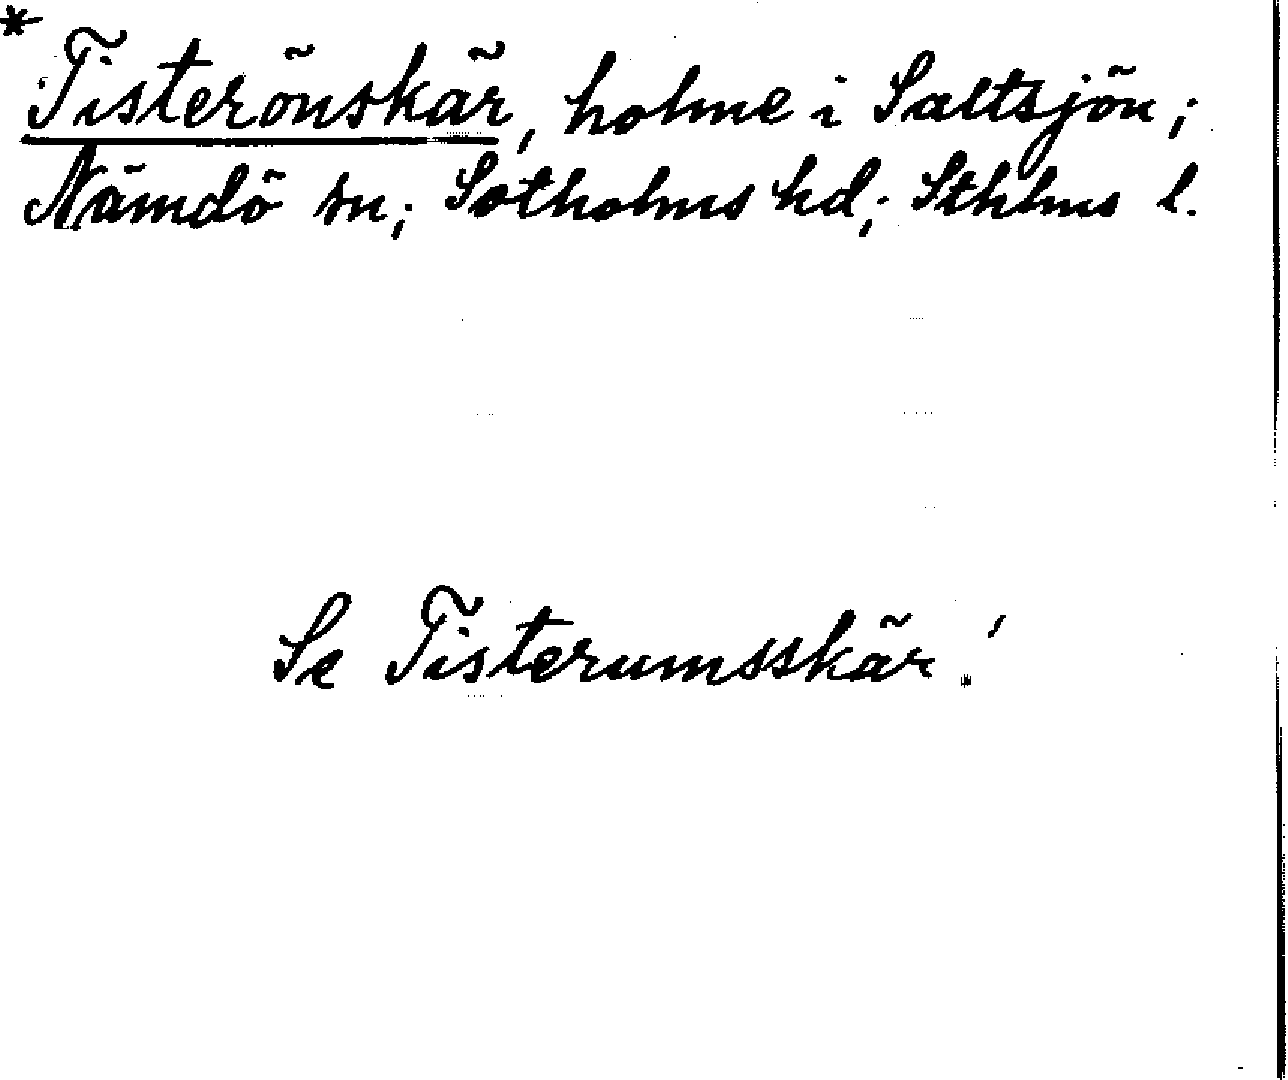 * Tisterönskär, holme i Saltsjön;
Nämdö sn; Sotholms hd; Sthlms l.
Se Tisterumsskär!